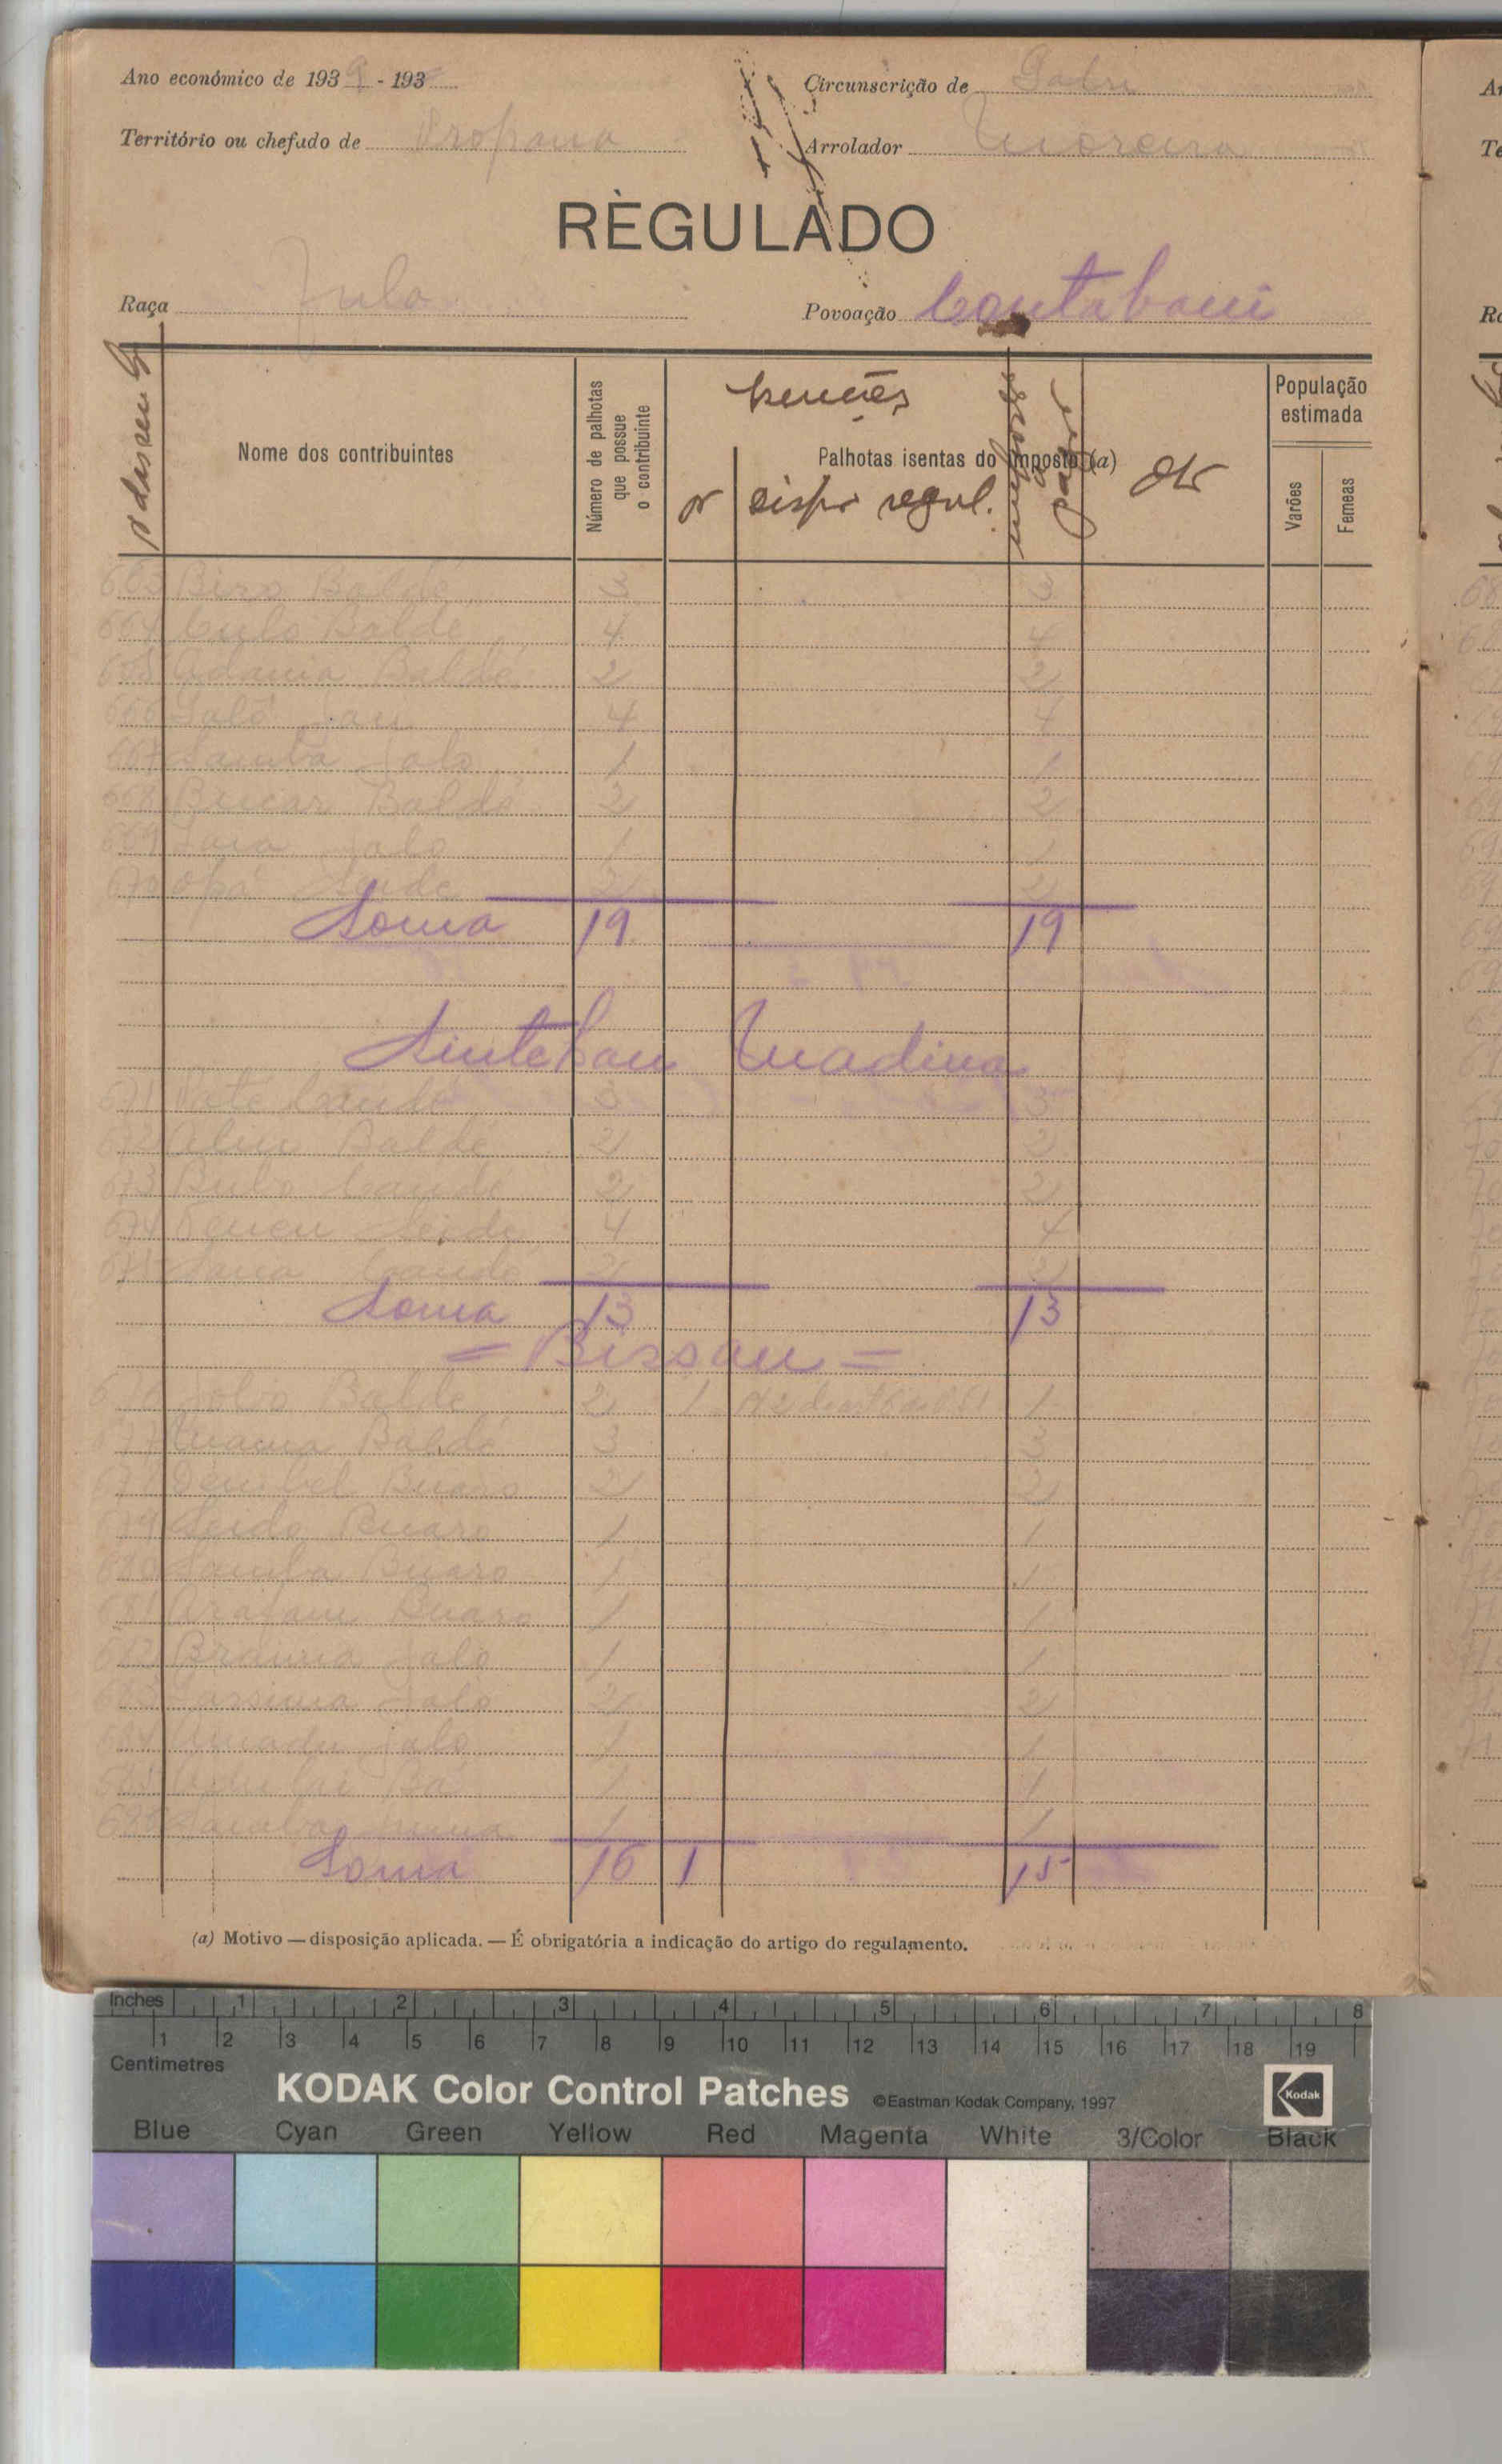 Ano económico de 1939 - 193
Circunscrição de Gabu
Território ou chefado de Propana
Arrolador Moreira
RÈGULADO
Raça Fula
Povoação Contabani
Nome dos contribuintes
Número de palhotas que possue o contribuinte
Isenções
Palhotas isentas do imposto (a)
nº
dispº regul.
a pagar
Obs
População estimada
Varões
Femeas
663 Biro Baldé 3 3
664 Baldé 4 4
665 Adama Baldé 2 2
666 4 4
667 Samba Jaló 1 1
668 Bucar Baldé 2 2
669 Jaló 1 1
670 Seide 2 2
Soma 19 19
Madina
671 Pate Candé 3 3
672 Aliu Baldé 2 2
673 Bubo Candé 2 2
674 Seide 4 4
675 Candé 2 2
Soma 13 13
= Bissau =
676 Baldé 2 1 1
677 Baldé 3 3
678 Buaro 2 2
679 Seide Buaro 1 1
680 Samba Buaro 1 1
681 Buaro 1 1
682 Braima Jaló 1 1
683 Jaló 2 2
684 Amadu Jaló 1 1
685 Bá 1 1
686 Samba 1 1
Soma 16 1 15
(a) Motivo — disposição aplicada. — É obrigatória a indicação do artigo do regulamento.
Inches 1 2 3 4 5 6 7 8
1 2 3 4 5 6 7 8 9 10 11 12 13 14 15 16 17 18 19
Centimetres
KODAK Color Control Patches ©Eastman Kodak Company, 1997 Kodak
Blue Cyan Green Yellow Red Magenta White 3/Color Black